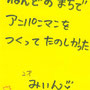 ねんどのまちで
アンパンマンを
つくってたのしかった
2才
みいん